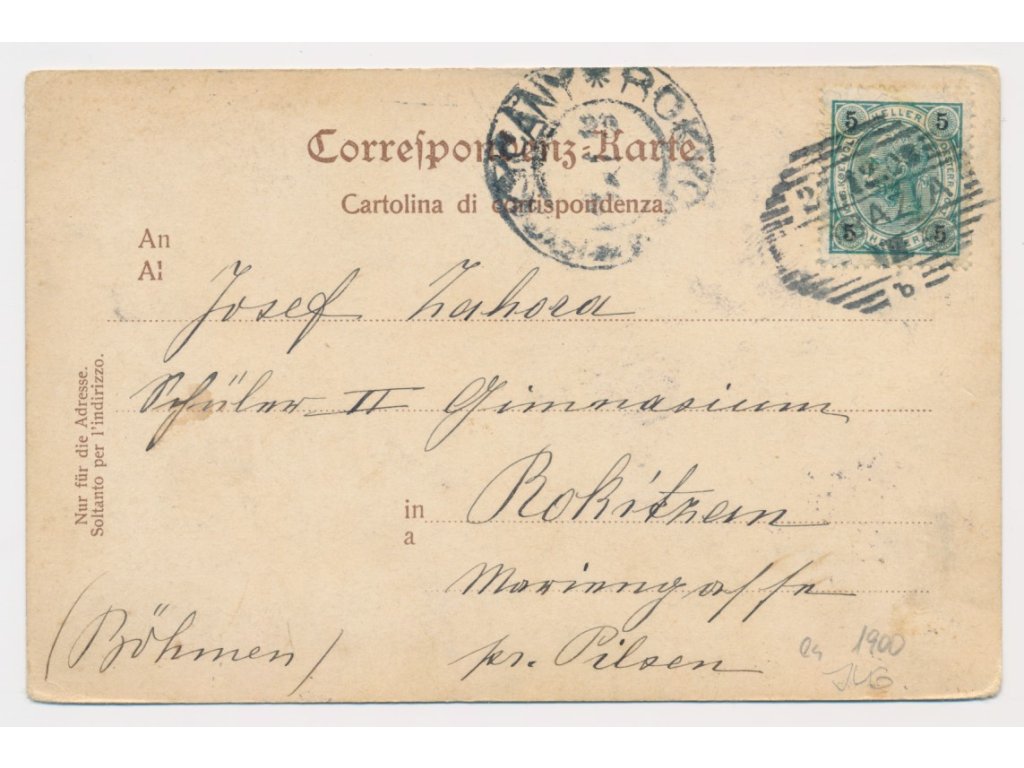 Correspondenz-Karte
Cartolina di corrispondenza.
ROKYCANY * ROKYC
5 HELLER 5
5 HELLER 5
b
An
Al
Josef Zahora
Schüler II Gimnasium
in Rokitzan
a
Mariengasse
(Böhmen)
pr. Pilsen
Nur für die Adresse.
Soltanto per l'indirizzo.
1900